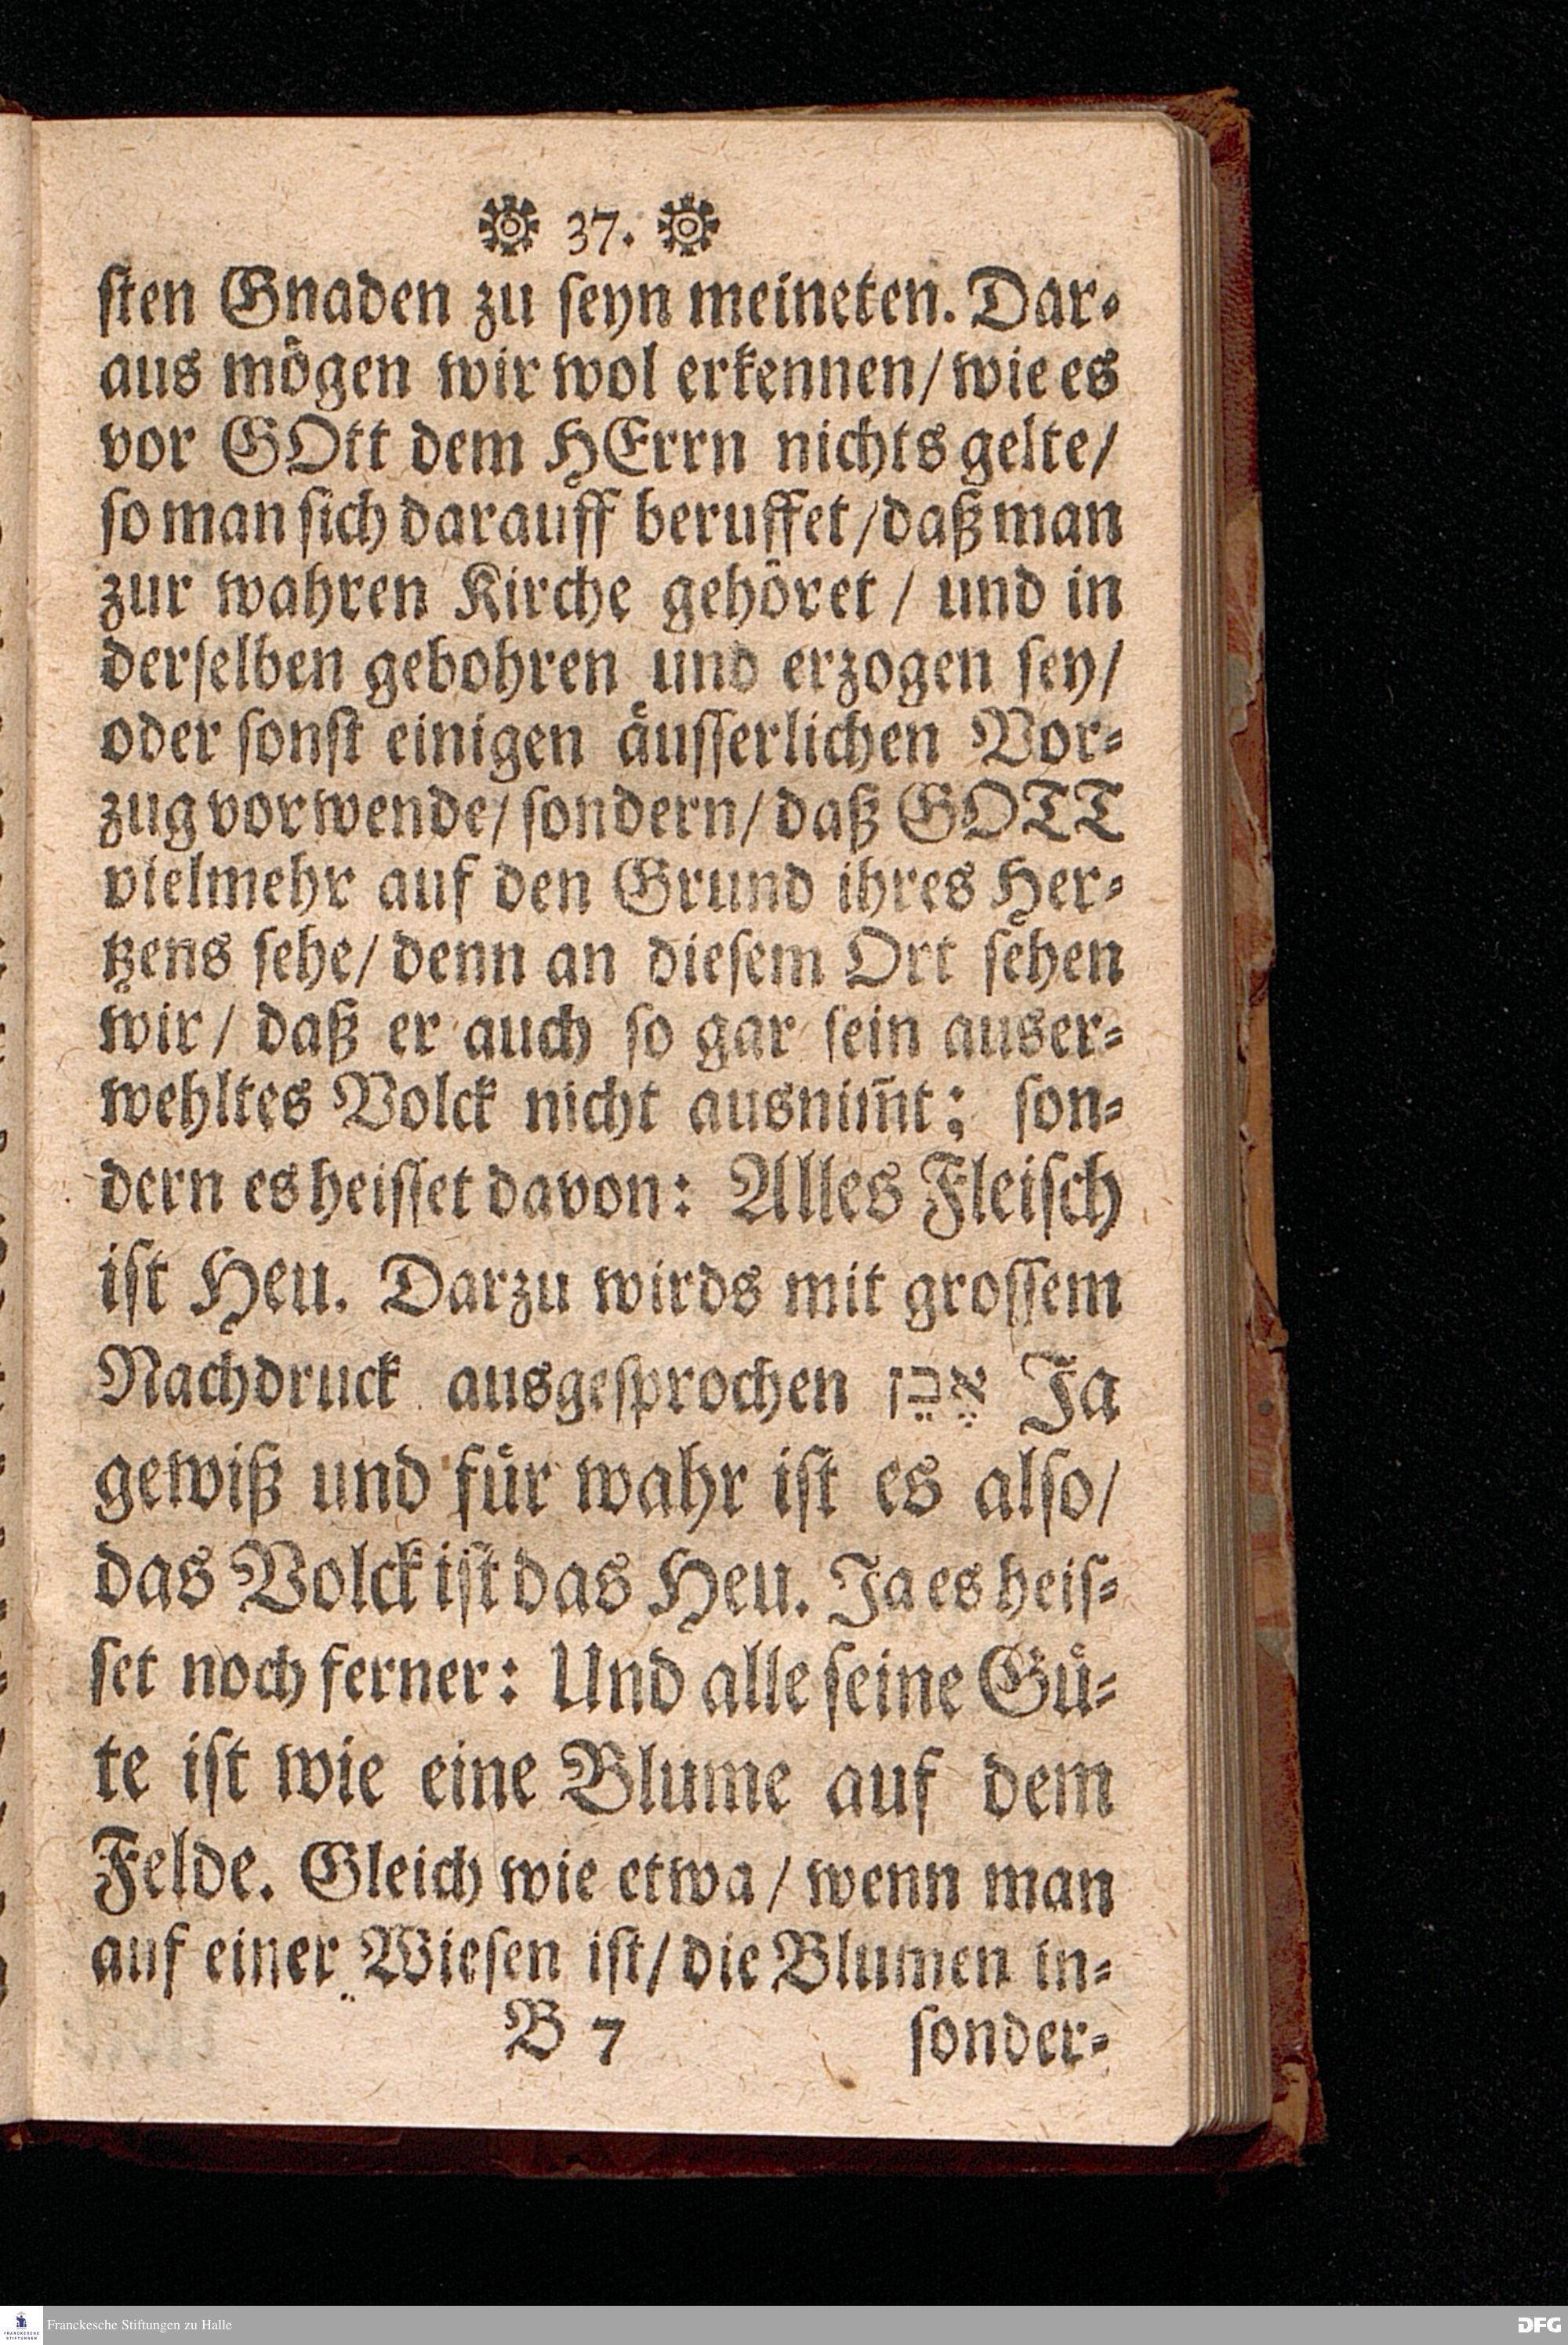 37.
ſten Gnaden zu ſeyn meineten. Dar⸗
aus mögen wir wol erkennen/ wie es
vor GOtt dem HErrn nichts gelte/
ſo man ſich darauff beruffet/ daß man
zur wahren Kirche gehöret / und in
derſelben gebohren und erzogen ſey/
oder ſonſt einigen äuſſerlichen Vor⸗
zug vorwende/ ſondern/ daß GOTT
vielmehr auf den Grund ihres Her⸗
tzens ſehe/ denn an dieſem Ort ſehen
wir/ daß er auch ſo gar ſein auser⸗
wehltes Volck nicht ausnim̃t; ſon⸗
dern es heiſſet davon: Alles Fleiſch
iſt Heu. Darzu wirds mit groſſem
Nachdruck ausgeſprochen אָכֵן Ja
gewiß und für wahr iſt es alſo/
das Volck iſt das Heu. Ja es heiſ⸗
ſet noch ferner: Und alle ſeine Gü⸗
te iſt wie eine Blume auf dem
Felde. Gleich wie etwa/ wenn man
auf einer Wieſen iſt/ die Blumen in⸗
B 7 ſonder⸗
FRANCKESCHE STIFTUNGEN
Franckesche Stiftungen zu Halle
DFG